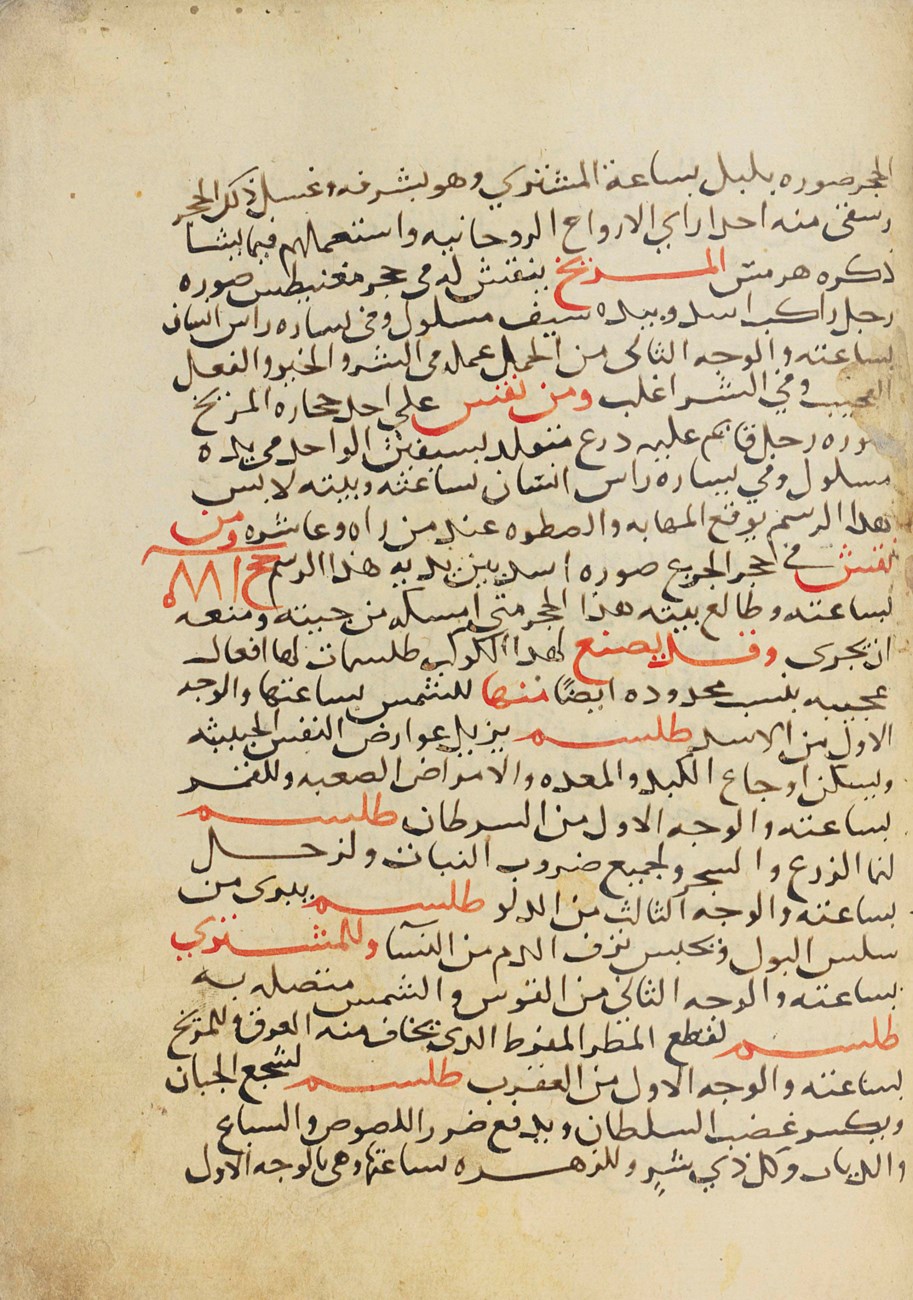 الحجر صوره بليل ساعة المشتري وهو بشرفه وغسل ذلك الحجر
وسقى منه احدا راي الارواح الروحانيه واستعملهم فيما يشا
ذكره هرمس المريخ ينقش له في حجر مغنيطس صوره
رجل راكب اسد وبيده سيف مسلول وفي يساره راس انسان
بساعته والوجه الثاني من الحمل عمله في الشر والخير والفعل
العجيب وفي الشر اغلب ومن نقش على احد حجاره المريخ
صوره رجل قايم عليه درع متقلد بسيفين الواحد في يده
مسلول وفي يساره راس انسان بساعته وبيته لابس
هذا الرسم يوقع المهابه والصطوه عند من راه وعاشره ومن
نقش في حجر الجزع صوره اسد بين يديه هذا الرسم
بساعته وطالع بيته هذا الحجر متى امسكه من ومنعه
ان يجرى وقد يصنع لهذا الكوكب طلسمات لها افعال
عجيبه بنسب محدوده ايضًا فمنها للشمس بساعتها والوجه
الاول من الاسد طلسم يزيل عوارض النفس الخبيثه
ويسكن اوجاع الكبد والمعده والامراض الصعبه وللقمر
بساعته والوجه الاول من السرطان طلسم
لنما الزرع والشجر ولجميع ضروب النبات ولزحل
بساعته والوجه الثالث من الدلو طلسم يبرى من
سلس البول ويحبس نزف الدم من النسا وللمشتري
بساعته والوجه الثاني من القوس والشمس متصله به
طلسم لقطع المطر المفرط الذي يخاف منه الغرق وللمريخ
بساعته والوجه الاول من العقرب طلسم لشجع الجبان
ويكسر غضب السلطان ويدفع ضرر اللصوص والسباع
والذياب وكل ذي شر وللزهره ساعتها وهي بالوجه الاول